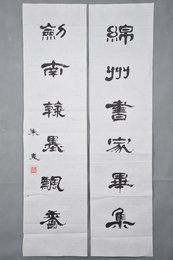 綿州書家畢集
劍南翰墨飄香